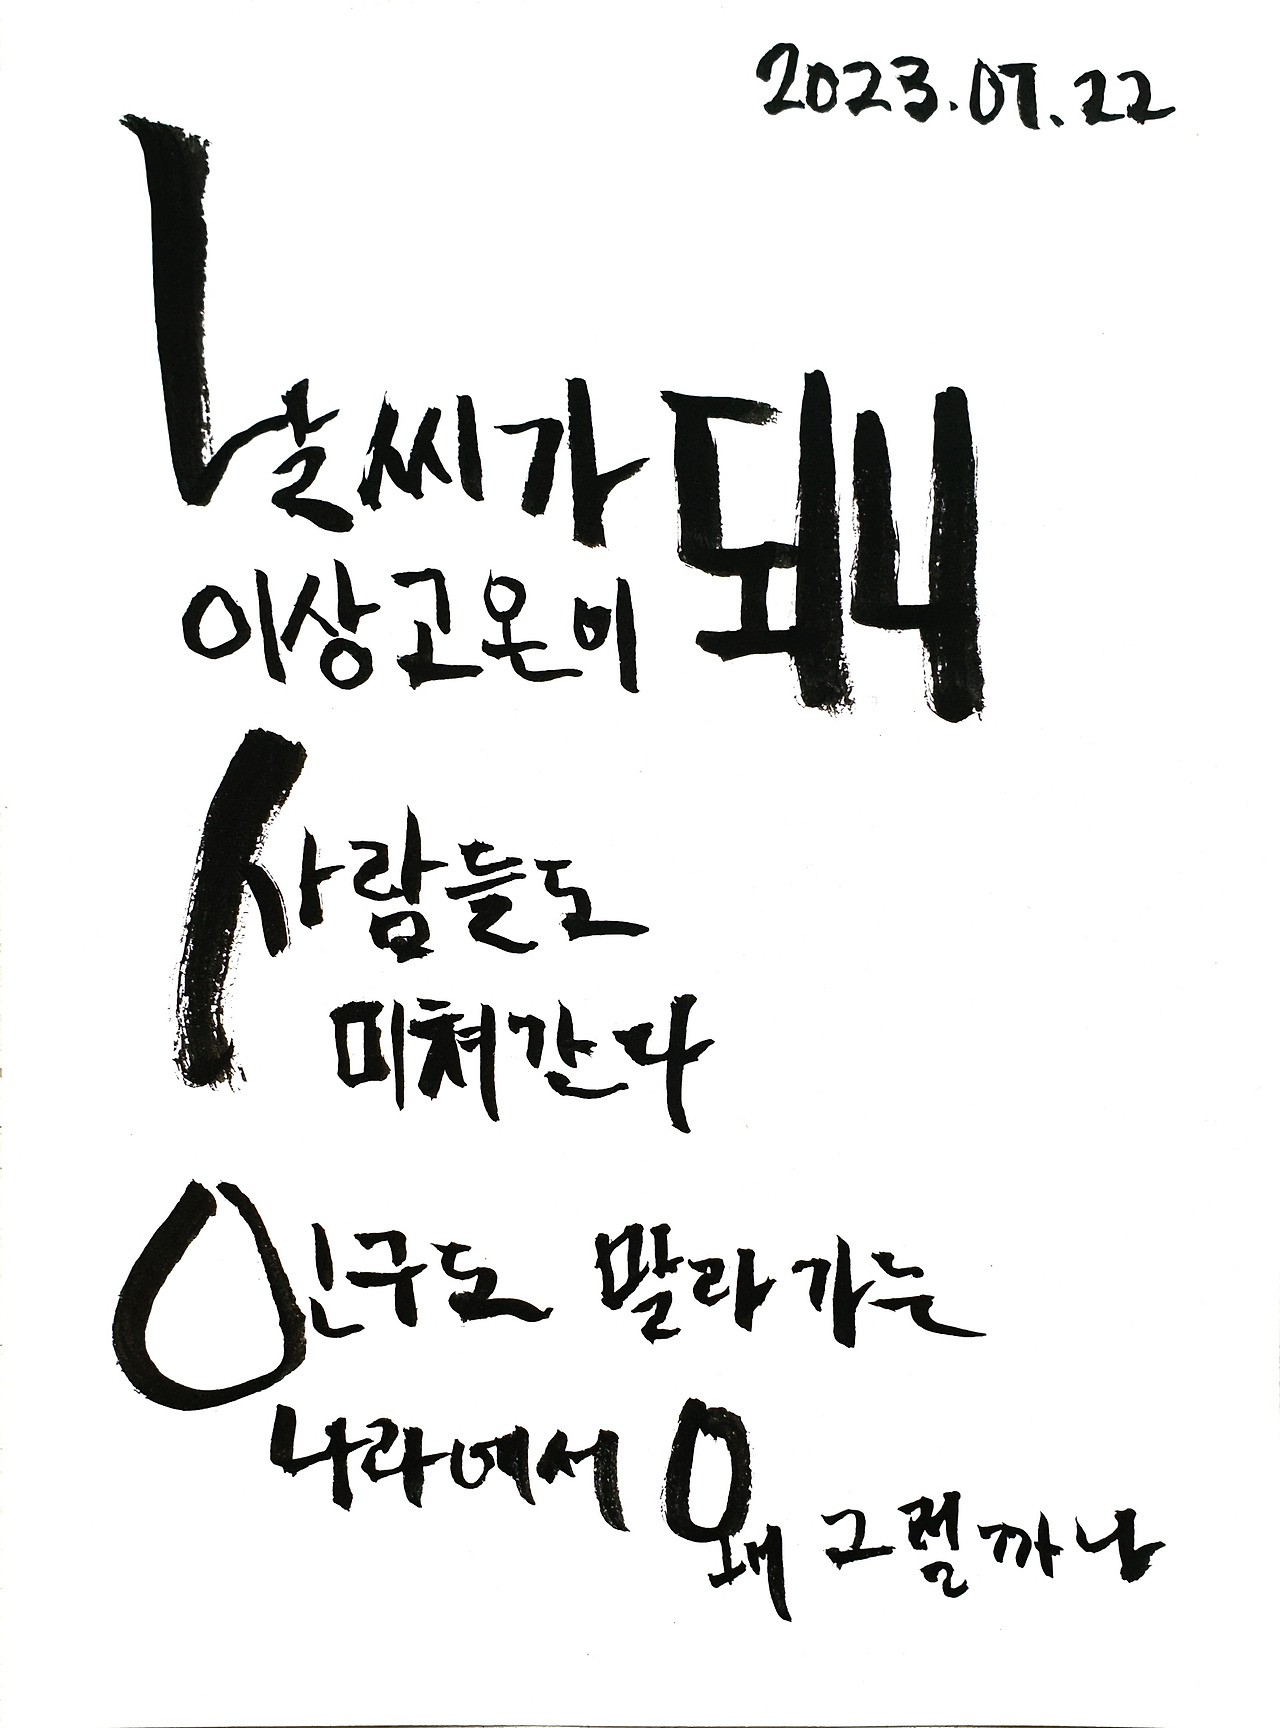 2023.07.22
날씨가
이상고온이 되니
사람들도
미쳐간다
인구도 말라가는
나라에서 왜 그럴까나